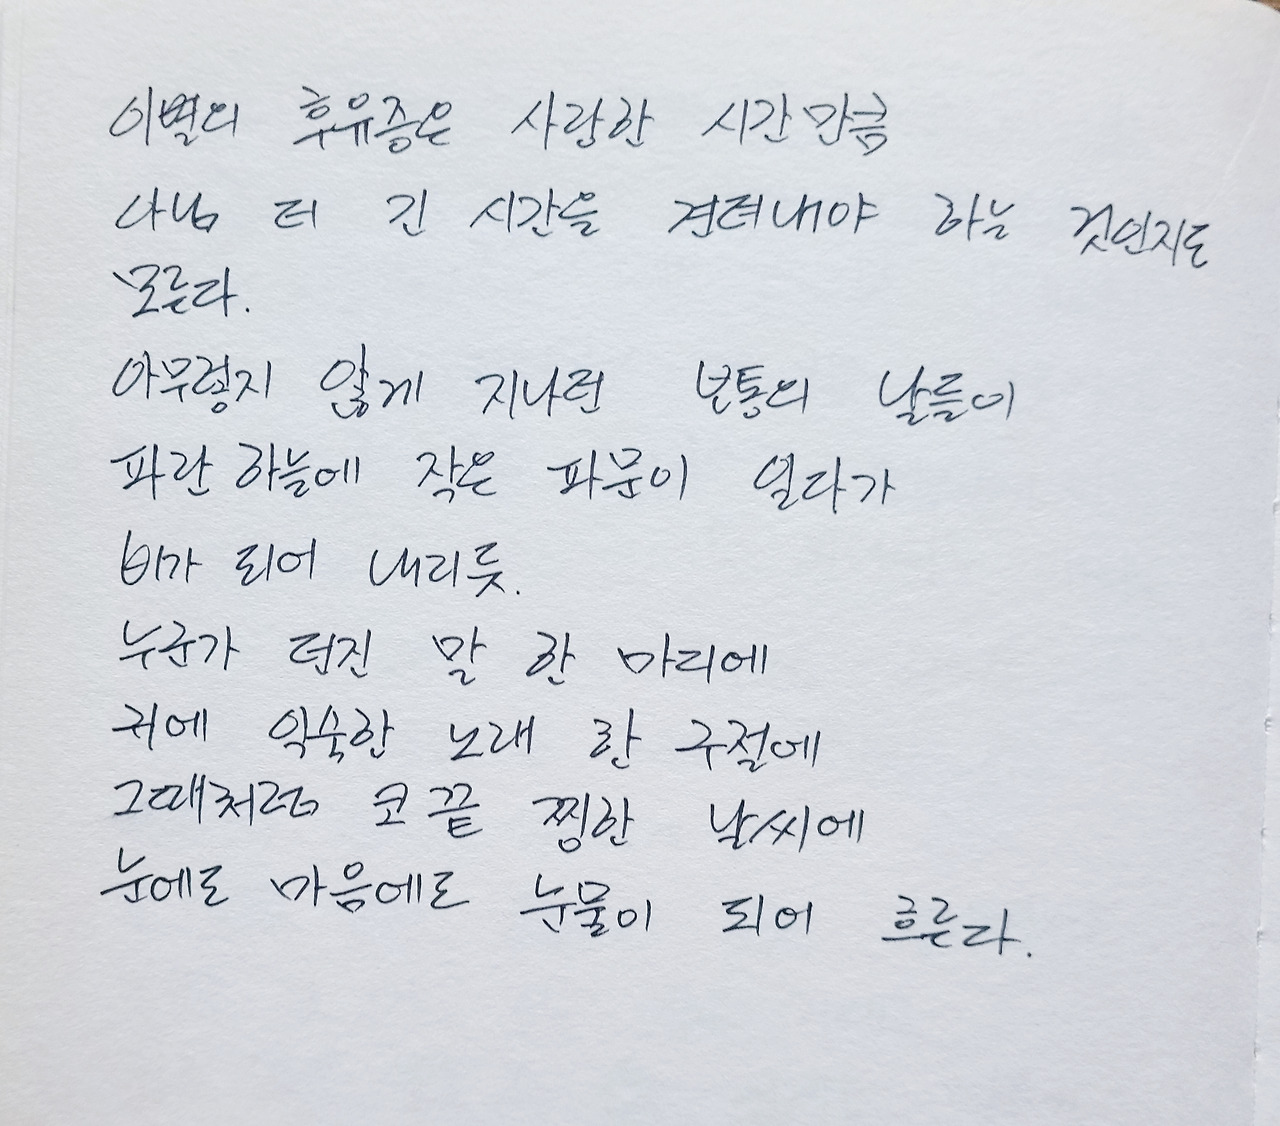 이별의 후유증은 사랑한 시간만큼
아님 더 긴 시간을 견뎌내야 하는 것인지도
모른다.
아무렇지 않게 지나던 보통의 날들이
파란 하늘에 작은 파문이 일다가
비가 되어 내리듯.
누군가 던진 말 한 마디에
귀에 익숙한 노래 한 구절에
그때처럼 코끝 찡한 날씨에
눈에도 마음에도 눈물이 되어 흐른다.